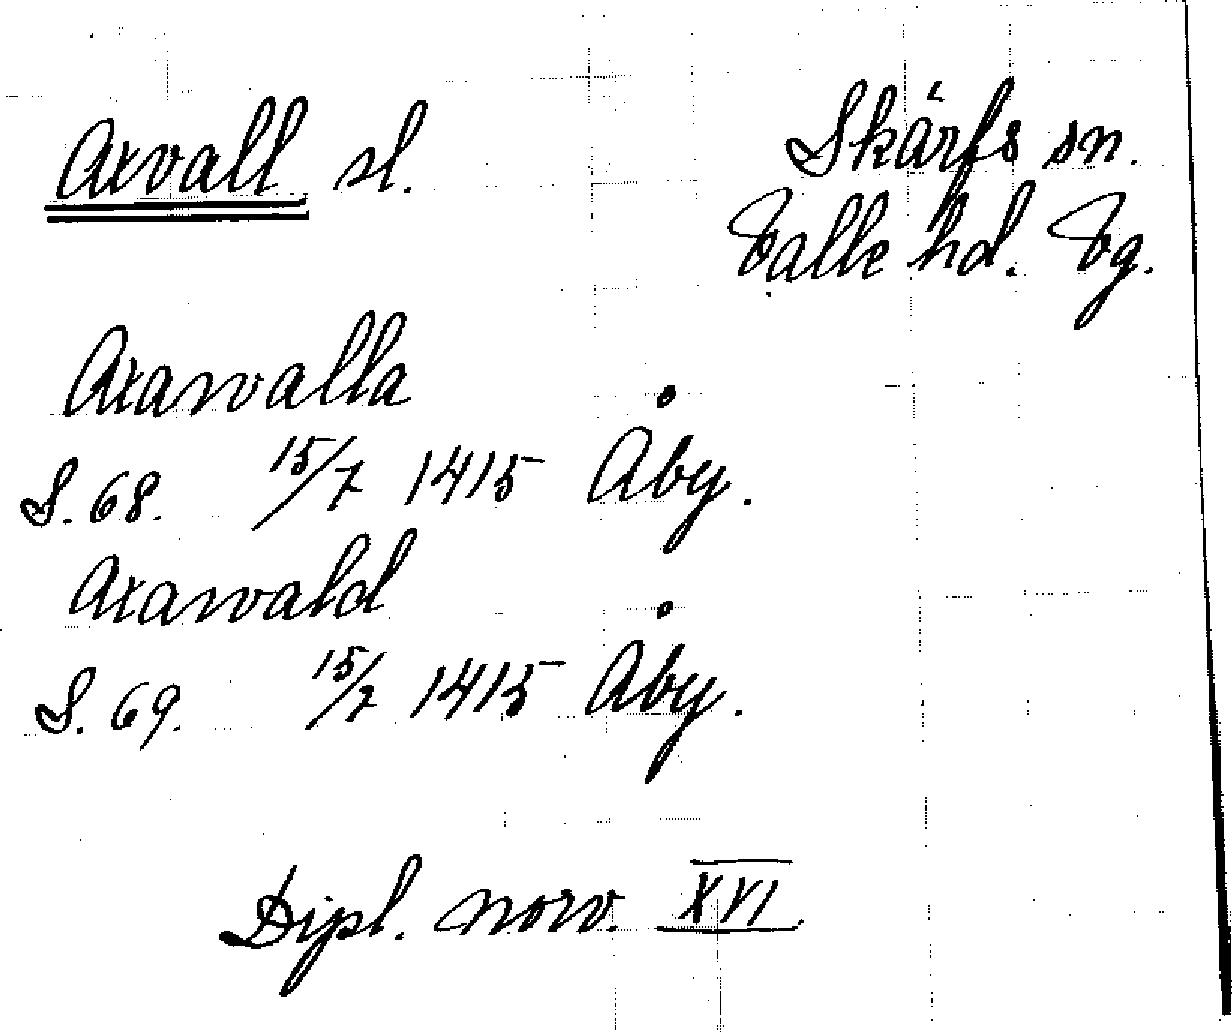 Axvall sl.
Skärfs sn.
Valle hd. Vg.
Axawalla
S. 68. 15/7 1415 Åby.
Axawald
S. 69. 15/7 1415 Åby.
Dipl. norv. XVI.